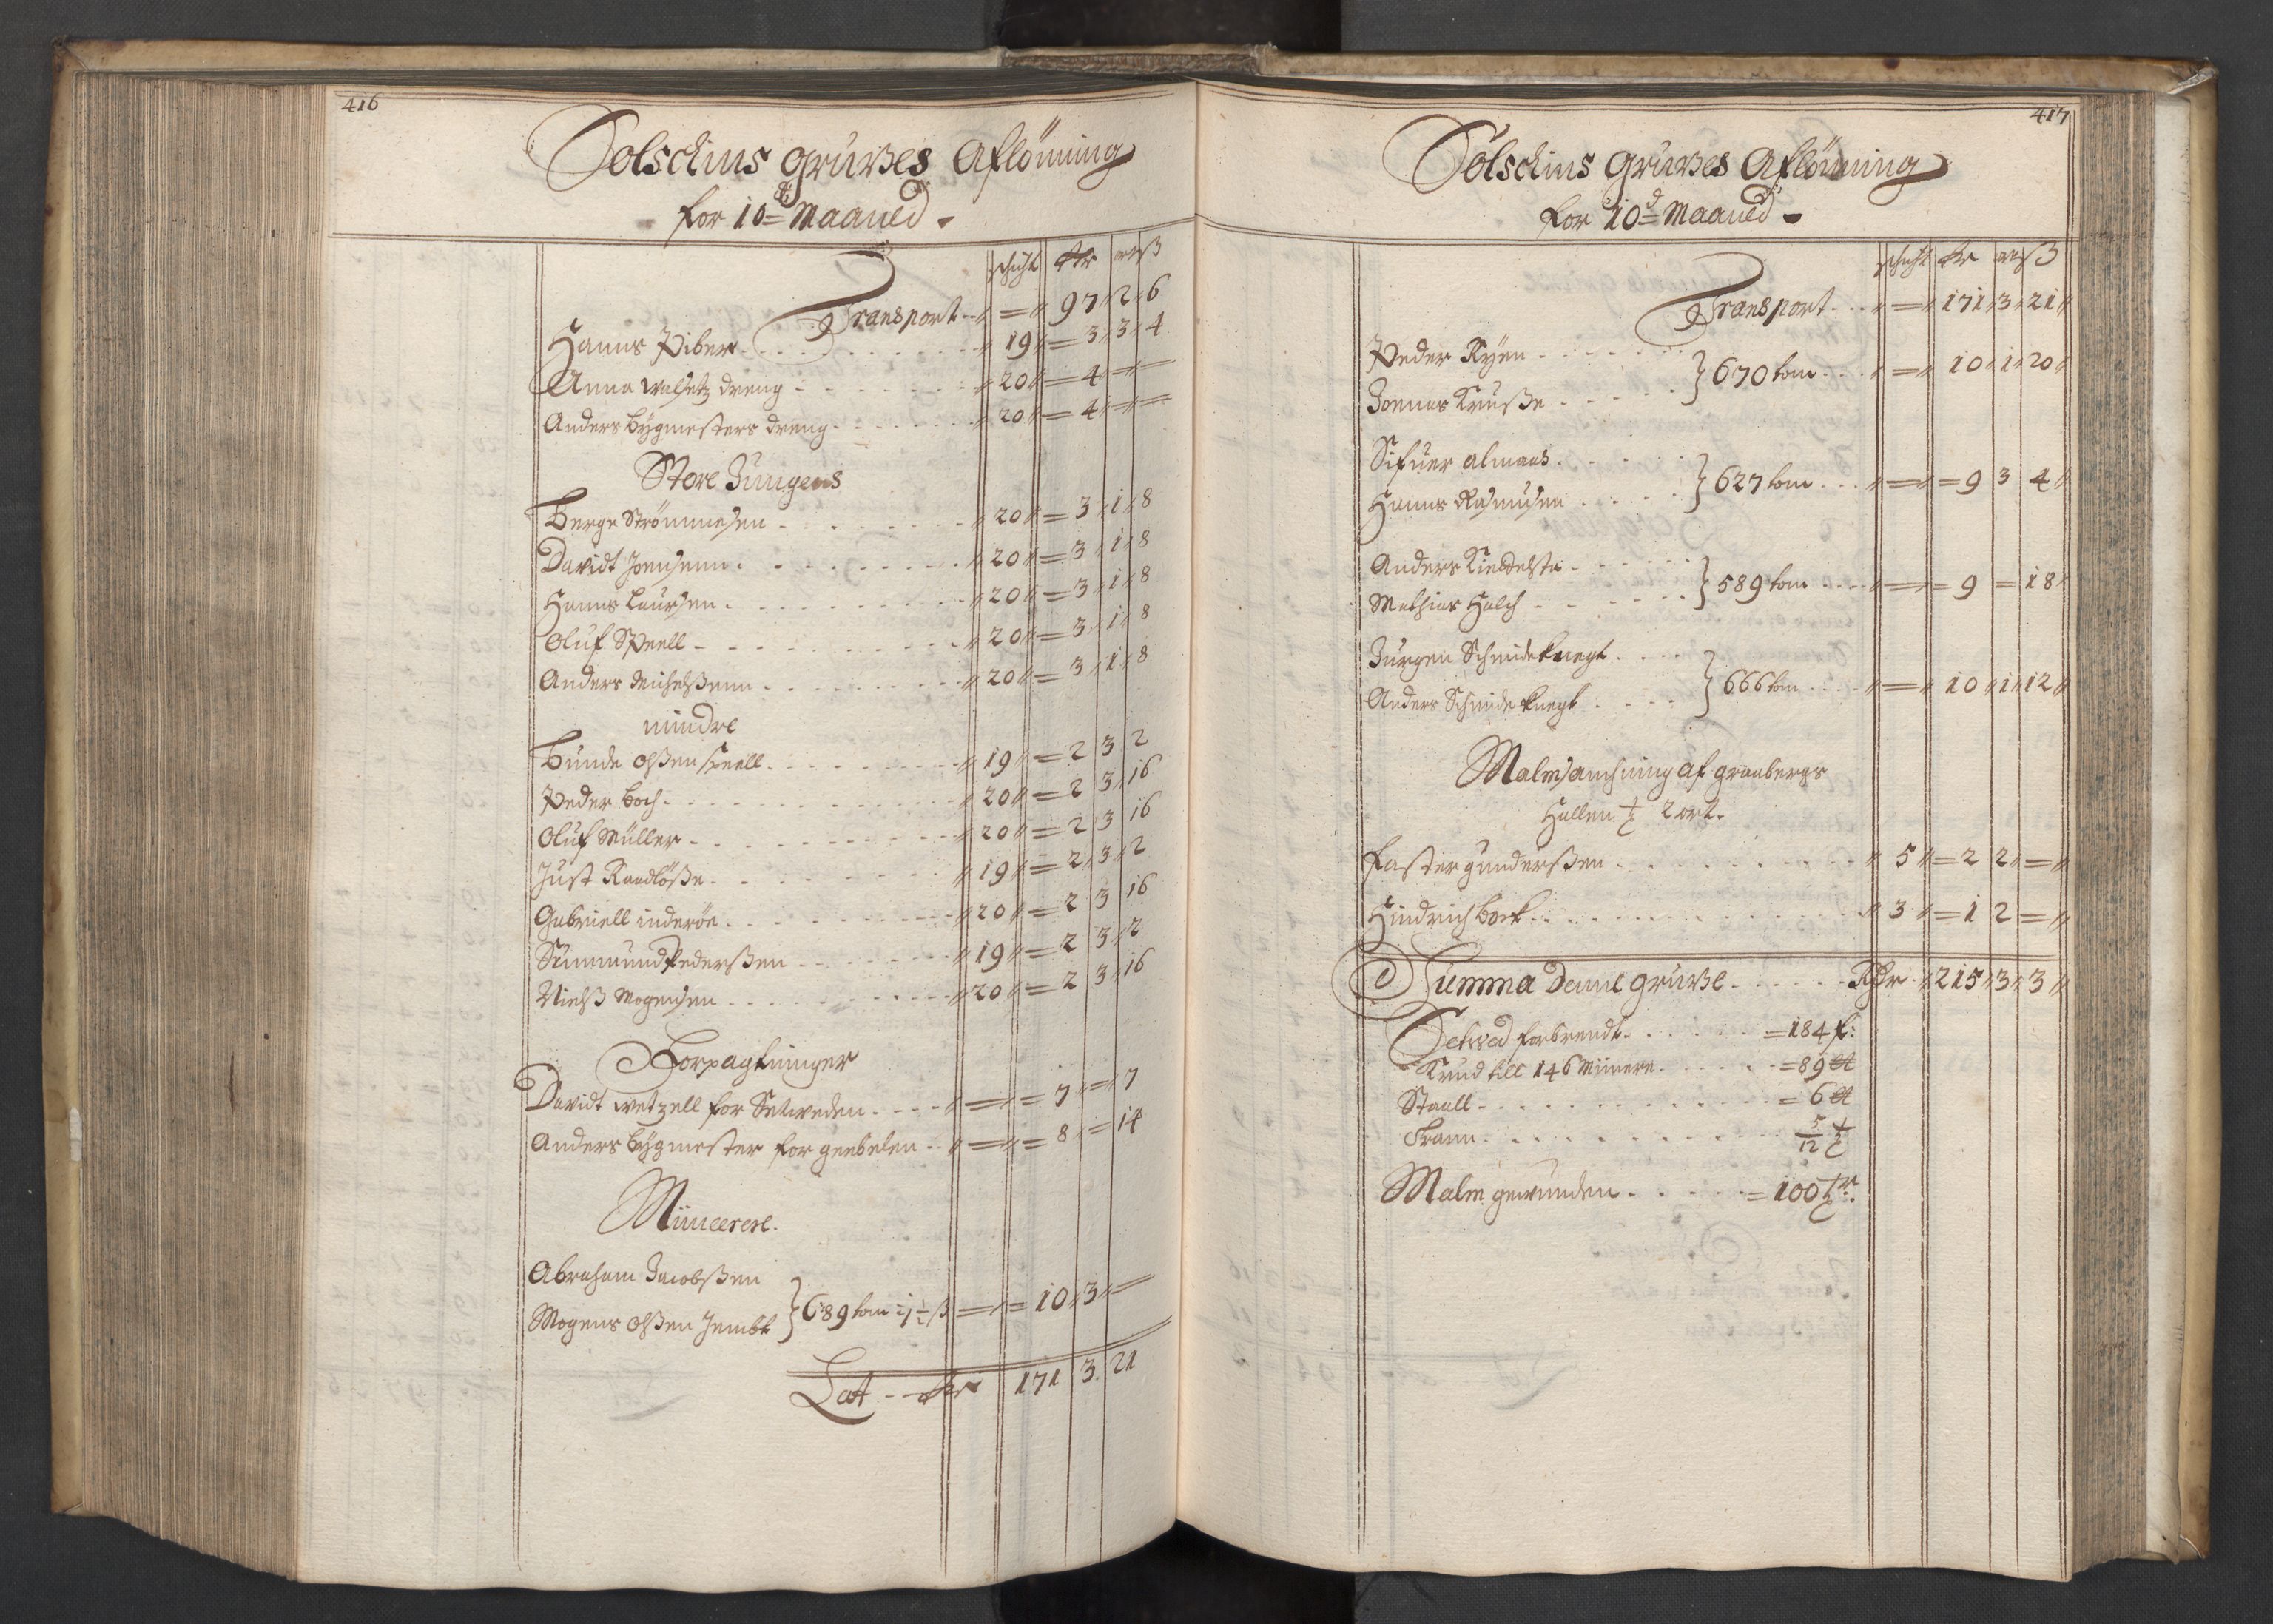 416
Solschins Grußes Aflönning
for 10d Maaned
schicht dlr ort ß
Transport = 97 2 6
Hanns Piber 19 = 3 3 4
Anna Walsetz dreng 20 = 4 = =
Anders Bygmesters dreng 20 = 4 = =
Store Jungens
Berge Strömmesen 20 = 3 1 8
Davidt Joensenn 20 = 3 1 8
Hanns Laursen 20 = 3 1 8
Oluf Speell 20 = 3 1 8
Anders Michelßenn 20 = 3 1 8
mindre
Bunde Olßen speell 19 = 2 3 2
Peder Boch 20 = 2 3 16
Oluf Müller 20 = 2 3 16
Just Raadløße 19 = 2 3 2
Gabriell inderöe 20 = 2 3 16
Simmund Pederßen 19 = 2 3 2
Nielß Mogensen 20 = 2 3 16
Forpagtninger
Davidt Wetzell for Setweden = = 7 = 7
Anders Bygmester for geebelen = = 8 = 14
Mineerere.
Abraham Jacobßen
Mogens Olßen Jembt } 689 tom = = 10 3 =
Lat dlr 171 3 21
417
Solschins Grußes Aflönning
for 10d Maaned
schicht dlr ort ß
Transport = 171 3 21
Peder Ryen
Joenas Kruße } 670 tom = 10 1 20
Sifuer almaas
Hanns Rasmusen } 627 tom = = 9 3 4
Anders Kieldelste
Mathias Halch } 589 tom = = 9 = 18
Jürgen Schmideknegt
Anders Schmide knegt } 666 tom = 10 1 12
Malm samchning af graabergs
Hallen 2 ort.
faster gunderßen 5 = 2 2 =
Hindrich Bork 3 = 1 2 =
Summa Denne Gruße Rdr 215 3 3
Setved forbrendt = 184 f:
Krud till 146 Minere = 89 ℔
Staall = 6 ℔
Trann 5/12
Malm gewunden = 100